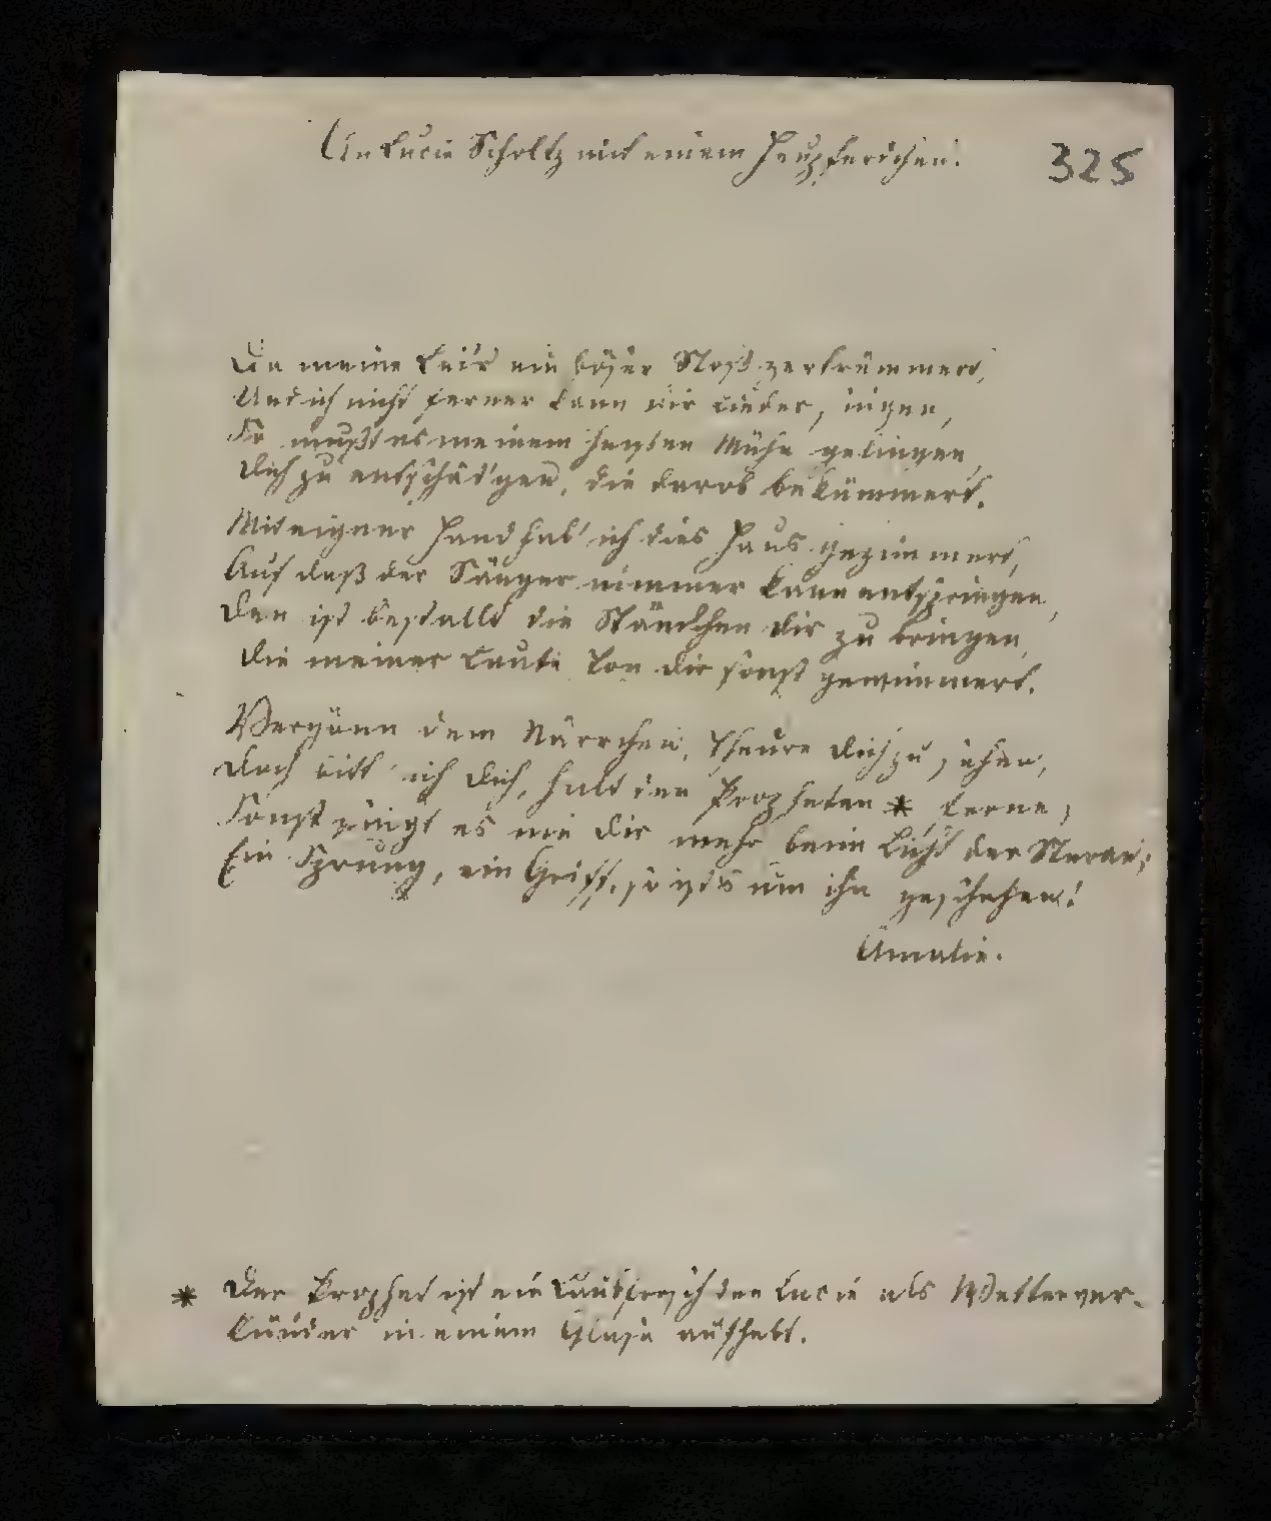 An Lucie Scholtz mit einem Heupferdchen.
325
Da meine Leir ein böser Stoß zertrümmert,
Und ich nicht ferner kann dir Lieder singen,
So mußt es meinem heißen Mühn gelingen,
Dich zu entschäd'gen, die darob bekümmert.
Mit eigner Hand hab' ich dies Haus gezimmert,
Auf daß der Sänger nimmer kann entspringen,
Der ist bestallt die Ständchen dir zu bringen,
Die meiner Laute Ton dir sonst gewimmert.
Vergönn dem Närrchen, Theure dich zu sehen,
Doch bitt' ich dich, halt den Propheten * ferne;
Sonst singt es nie dir mehr beim Licht der Sterne;
Ein Sprung, ein Griff, so ists um ihn geschehen!
Amalie.
* Der Prophet ist ein Laubfrosch den Lucie als Wetterver-
künder in einem Glase aufhebt.